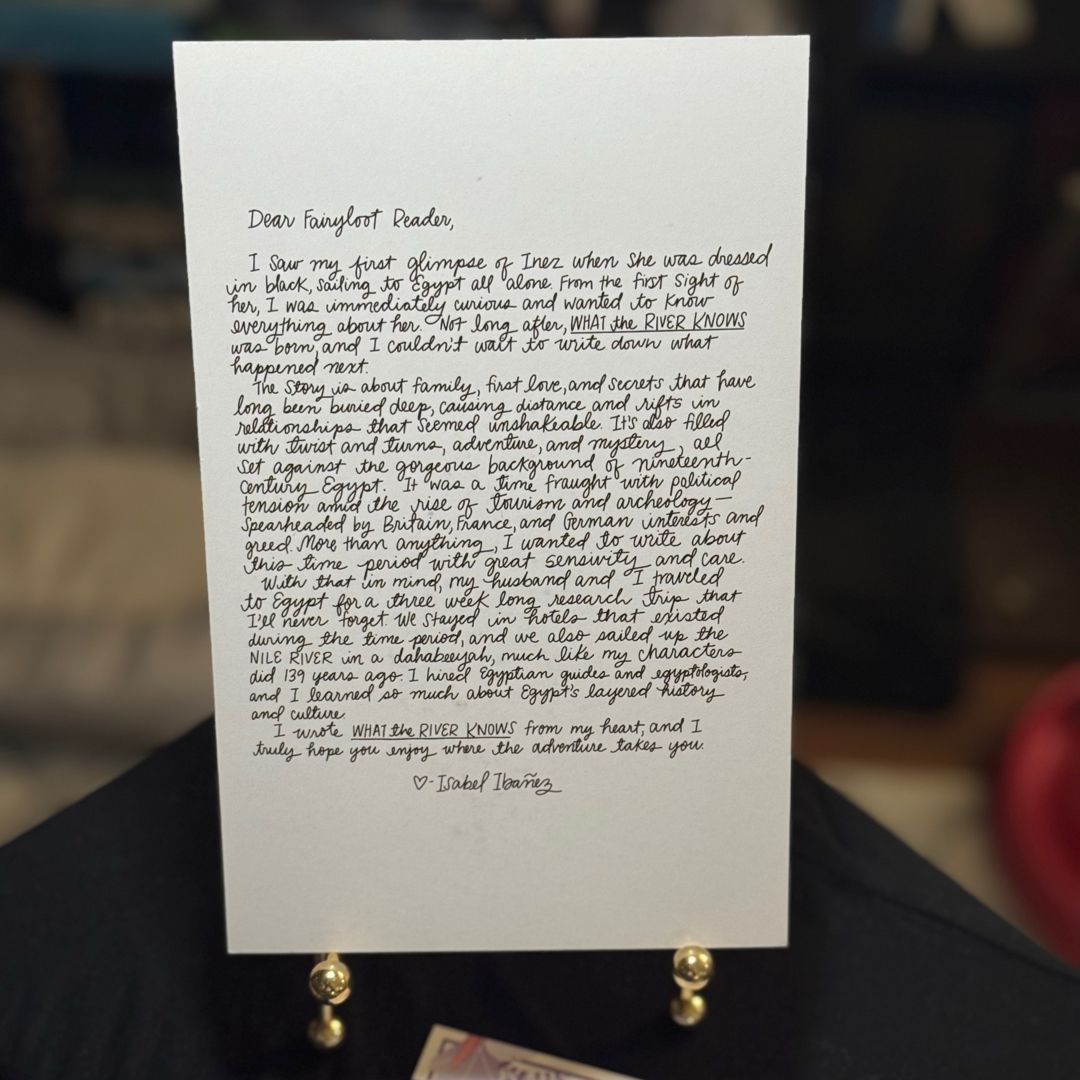 Dear Fairyloot Reader,
I saw my first glimpse of Inez when she was dressed
in black, sailing to Egypt all alone. From the first sight of
her, I was immediately curious and wanted to know
everything about her. Not long after, WHAT the RIVER KNOWS
was born, and I couldn't wait to write down what
happened next.
The story is about family, first love, and secrets that have
long been buried deep, causing distance and rifts in
relationships that seemed unshakeable. It's also filled
with twist and turns, adventure, and mystery, all
set against the gorgeous background of nineteenth-
century Egypt. It was a time fraught with political
tension amid the rise of tourism and archeology—
spearheaded by Britain, France, and German interests and
greed. More than anything, I wanted to write about
this time period with great sensivity and care.
With that in mind, my husband and I traveled
to Egypt for a three week long research trip that
I'll never forget. We stayed in hotels that existed
during the time period, and we also sailed up the
NILE RIVER in a dahabeeyah, much like my characters
did 139 years ago. I hired Egyptian guides and egyptologists,
and I learned so much about Egypt's layered history
and culture.
I wrote WHAT the RIVER KNOWS from my heart, and I
truly hope you enjoy where the adventure takes you.
♡-Isabel Ibañez